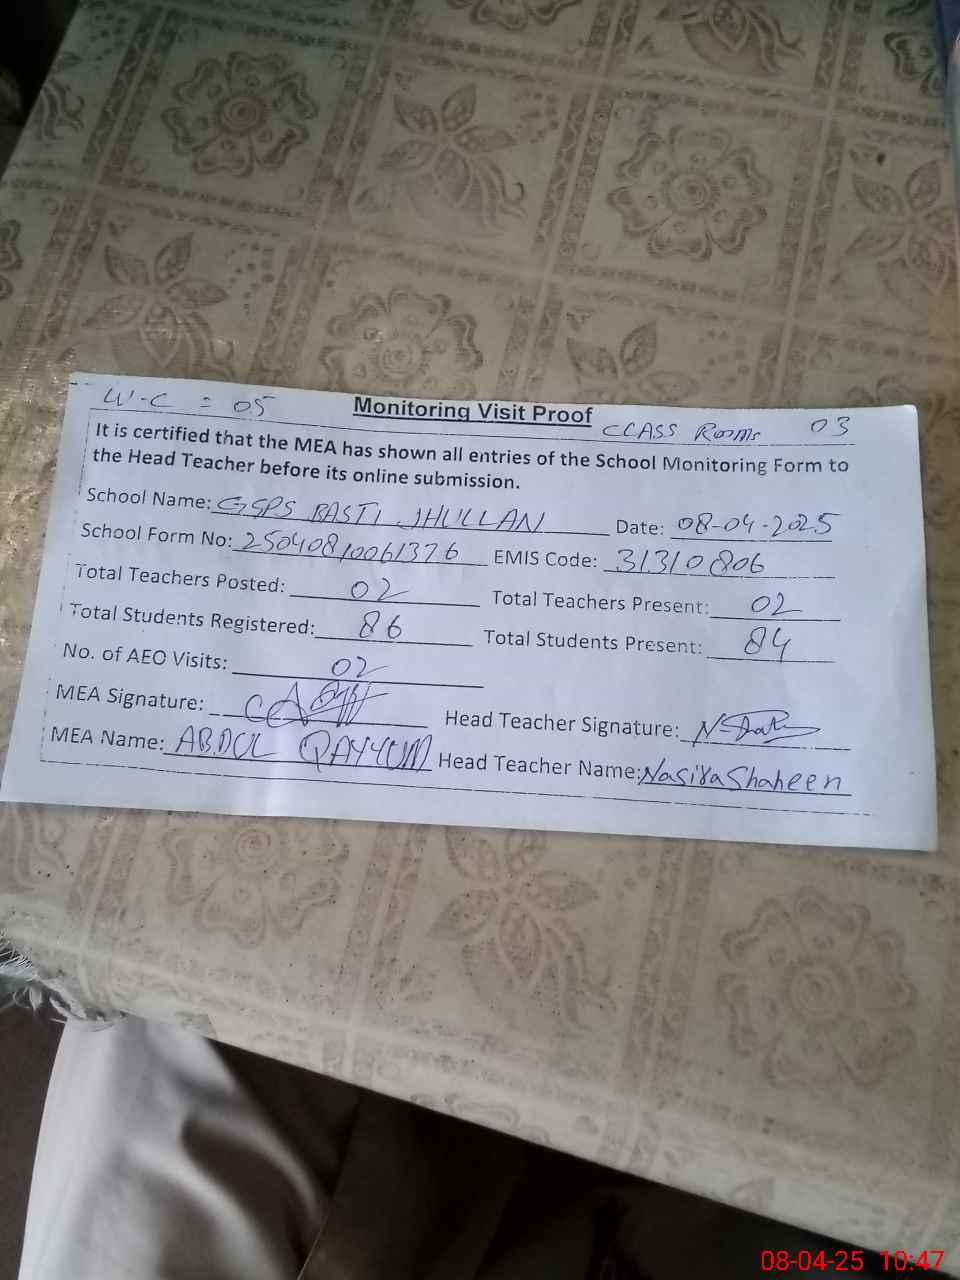 W.C = 05
Monitoring Visit Proof
CLASS Rooms 03
It is certified that the MEA has shown all entries of the School Monitoring Form to
the Head Teacher before its online submission.
School Name: GSPS BASTI JHULLAN Date: 08-04-2025
School Form No: 25040810061376 EMIS Code: 31310806
Total Teachers Posted: 02 Total Teachers Present: 02
Total Students Registered: 86 Total Students Present: 84
No. of AEO Visits: 02
MEA Signature: Head Teacher Signature:
MEA Name: ABDUL QAYYUM Head Teacher Name: Nasira Shaheen
08-04-25 10:47